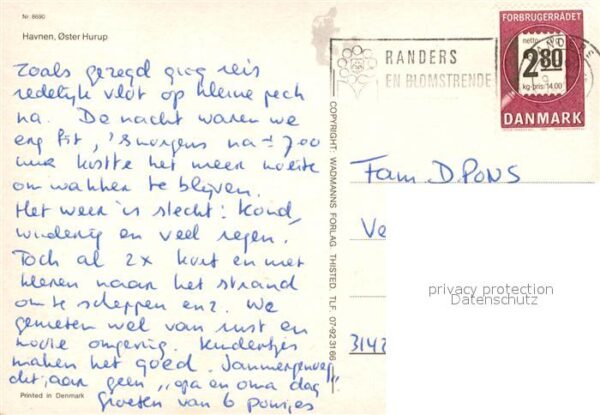 Nr. 8690
Havnen, Øster Hurup
Zoals gezegd ging reis
redelijk vlot op kleine pech
na. De nacht waren we
erg fit, 's morgens na ± 7.00
uur kostte het meer moeite
om wakker te blijven.
Het weer is slecht: koud,
winderig en veel regen.
Toch al 2x kort en met
kleren naar het strand
om te scheppen enz. We
genieten wel van rust en
mooie omgeving. Kindertjes
maken het goed. Jammergenoeg
dit jaar geen „opa en oma dag".
Groeten van 6 ponsjes
Printed in Denmark
COPYRIGHT: WADMANNS FORLAG, THISTED. TLF. 07-92 31 66
RANDERS
EN BLOMSTRENDE
FORBRUGERRÅDET
netto
2 80
kg-pris 14.00
DANMARK
Fam D. PONS
Ve
3142
privacy protection
Datenschutz